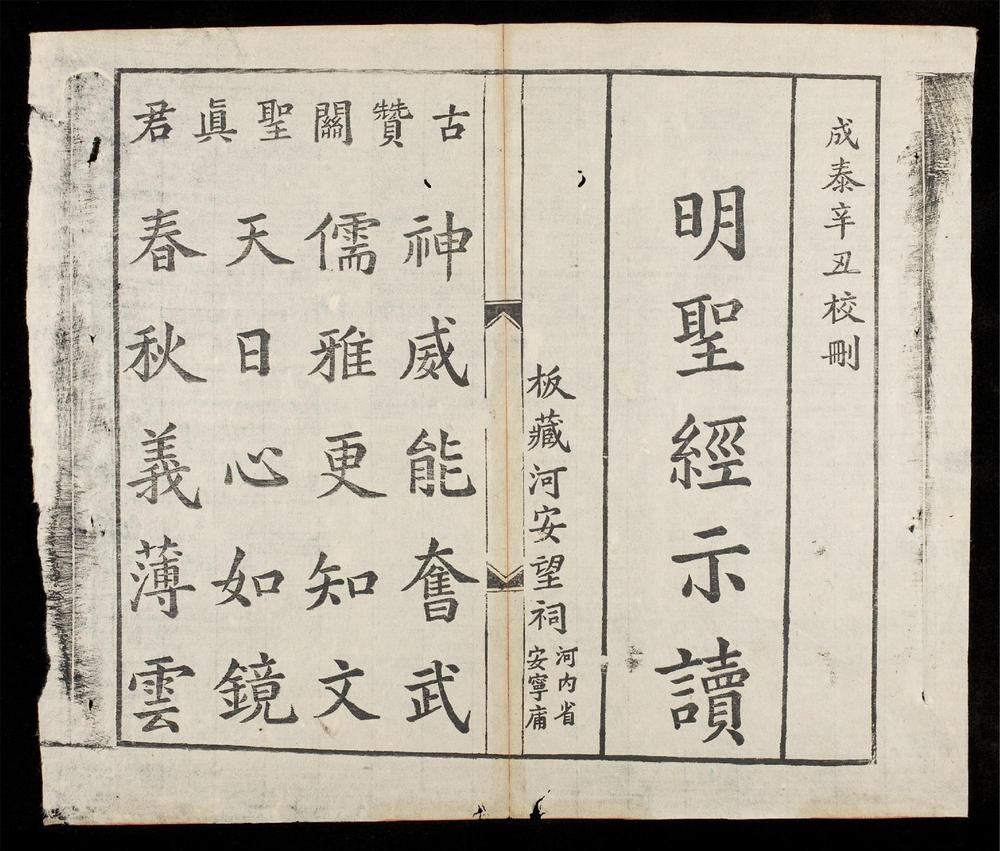 成泰辛丑校刪
明聖經示讀
板藏河安望祠
河内省
安寧庯
古贊關聖眞君
神威能奮武
儒雅更知文
天日心如鏡
春秋義薄雲